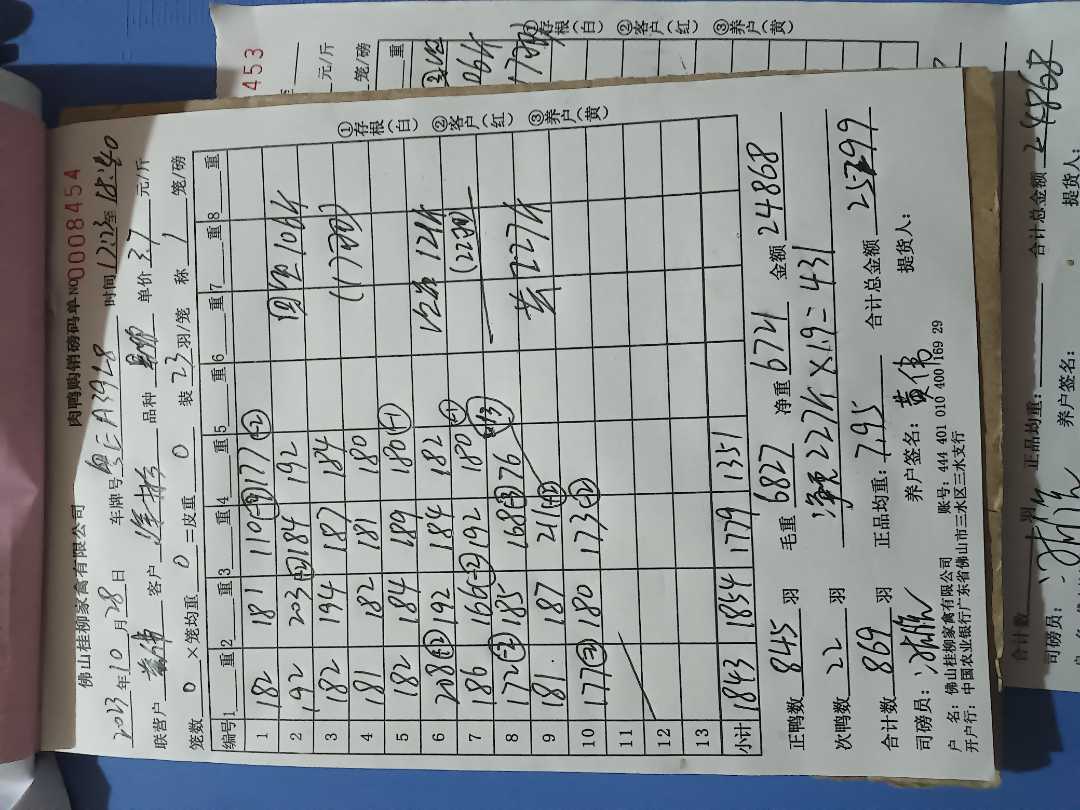 佛山桂柳家禽有限公司 肉鸭购销磅码单 NO 0008454
2023年10月28日 车牌号粤EA39L8 时间1223至12:40
联营户 黄伟 客户 品种 单价3.7元/斤
笼数 0 ×笼均重 0 =皮重 0 装 23 羽/笼 称 1 笼/磅
编号 1 重 2 重 3 重 4 重 5 重 6 重 7 重 8 重
1 182 181 110 177 (-2)
2 192 203 184 192
3 182 194 187 184
4 181 182 181 180
5 182 184 189 180 (-1)
6 208 (+2) 192 184 182
7 186 166 (-2) 192 180 (-1)
8 172 (-2) 185 168 (-3) 76
9 181 187 211
10 177 180 173 (-2)
11
12
13
小计 1843 1854 1779 1351
106斤
(17羽)
121斤
(22羽)
共227斤
正鸭数 845 羽 毛重 6827 净重 6721 金额 24868
次鸭数 22 羽 227斤×1.9=431
合计数 869 羽 正品均重: 7.95 合计总金额 25299
司磅员: 养户签名: 黄伟 提货人:
户 名: 佛山桂柳家禽有限公司 账号: 444 401 010 400 169 29
开户行: 中国农业银行广东省佛山市三水区三水支行
①存根(白) ②客户(红) ③养户(黄)
453
元/斤
笼/磅
重
106斤
17羽
①存根(白) ②客户(红) ③养户(黄)
24868
合计数 羽 正品均重: 合计总金额
司磅员: 养户签名: 提货人: